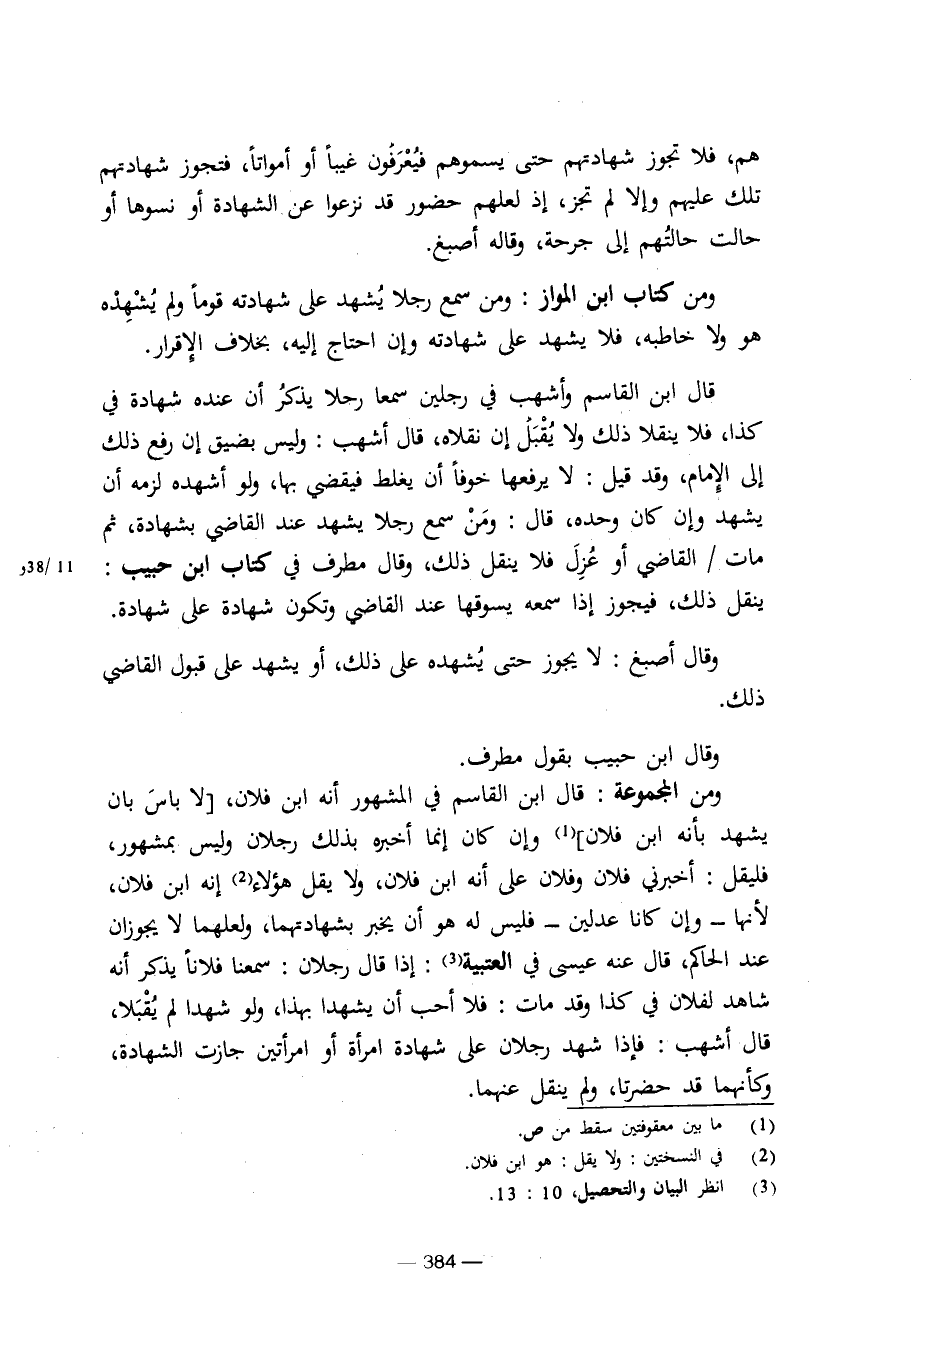 هم، فلا تجوز شهادتهم حتى يسموهم فيُعْرَفُون غيباً أو أمواتاً، فتجوز شهادتهم
تلك عليهم وإلا لم تجز، إذ لعلهم حضور قد نزعوا عن الشهادة أو نسوها أو
حالت حالتُهم إلى جرحة، وقاله أصبغ.
ومن كتاب ابن المواز : ومن سمع رجلا يُشهد على شهادته قوماً ولم يُشْهِدْه
هو ولا خاطبه، فلا يشهد على شهادته وإن احتاج إليه، بخلاف الإقرار.
قال ابن القاسم وأشهب في رجلين سمعا رحلا يذكرُ أن عنده شهادة في
كذا، فلا ينقلا ذلك ولا يُقْبَلُ إن نقلاه، قال أشهب : وليس بضيق إن رفع ذلك
إلى الإمام، وقد قيل : لا يرفعها خوفاً أن يغلط فيقضي بها، ولو أشهده لزمه أن
يشهد وإن كان وحده، قال : ومَنْ سمع رجلا يشهد عند القاضي بشهادة، ثم
مات / القاضي أو عُزِلَ فلا ينقل ذلك، وقال مطرف في كتاب ابن حبيب : 11 /38و
ينقل ذلك، فيجوز إذا سمعه يسوقها عند القاضي وتكون شهادة على شهادة.
وقال أصبغ : لا يجوز حتى يُشهده على ذلك، أو يشهد على قبول القاضي
ذلك.
وقال ابن حبيب بقول مطرف.
ومن المجموعة : قال ابن القاسم في المشهور أنه ابن فلان، [لا باسَ بان
يشهد بأنه ابن فلان](1) وإن كان إنما أخبره بذلك رجلان وليس بمشهور،
فليقل : أخبرني فلان وفلان على أنه ابن فلان، ولا يقل هؤلاء(2) إنه ابن فلان،
لأنها – وإن كانا عدلين – فليس له هو أن يخبر بشهادتهما، ولعلهما لا يجوزان
عند الحاكم، قال عنه عيسى في العتبية(3) : إذا قال رجلان : سمعنا فلاناً يذكر أنه
شاهد لفلان في كذا وقد مات : فلا أحب أن يشهدا بهذا، ولو شهدا لم يُقْبَلا،
قال أشهب : فإذا شهد رجلان على شهادة امرأة أو امرأتين جازت الشهادة،
وكأنهما قد حضرتا، ولم ينقل عنهما.
(1) ما بين معقوفتين سقط من ص.
(2) في النسختين : ولا يقل : هو ابن فلان.
(3) انظر البيان والتحصيل، 10 : 13.
— 384 —